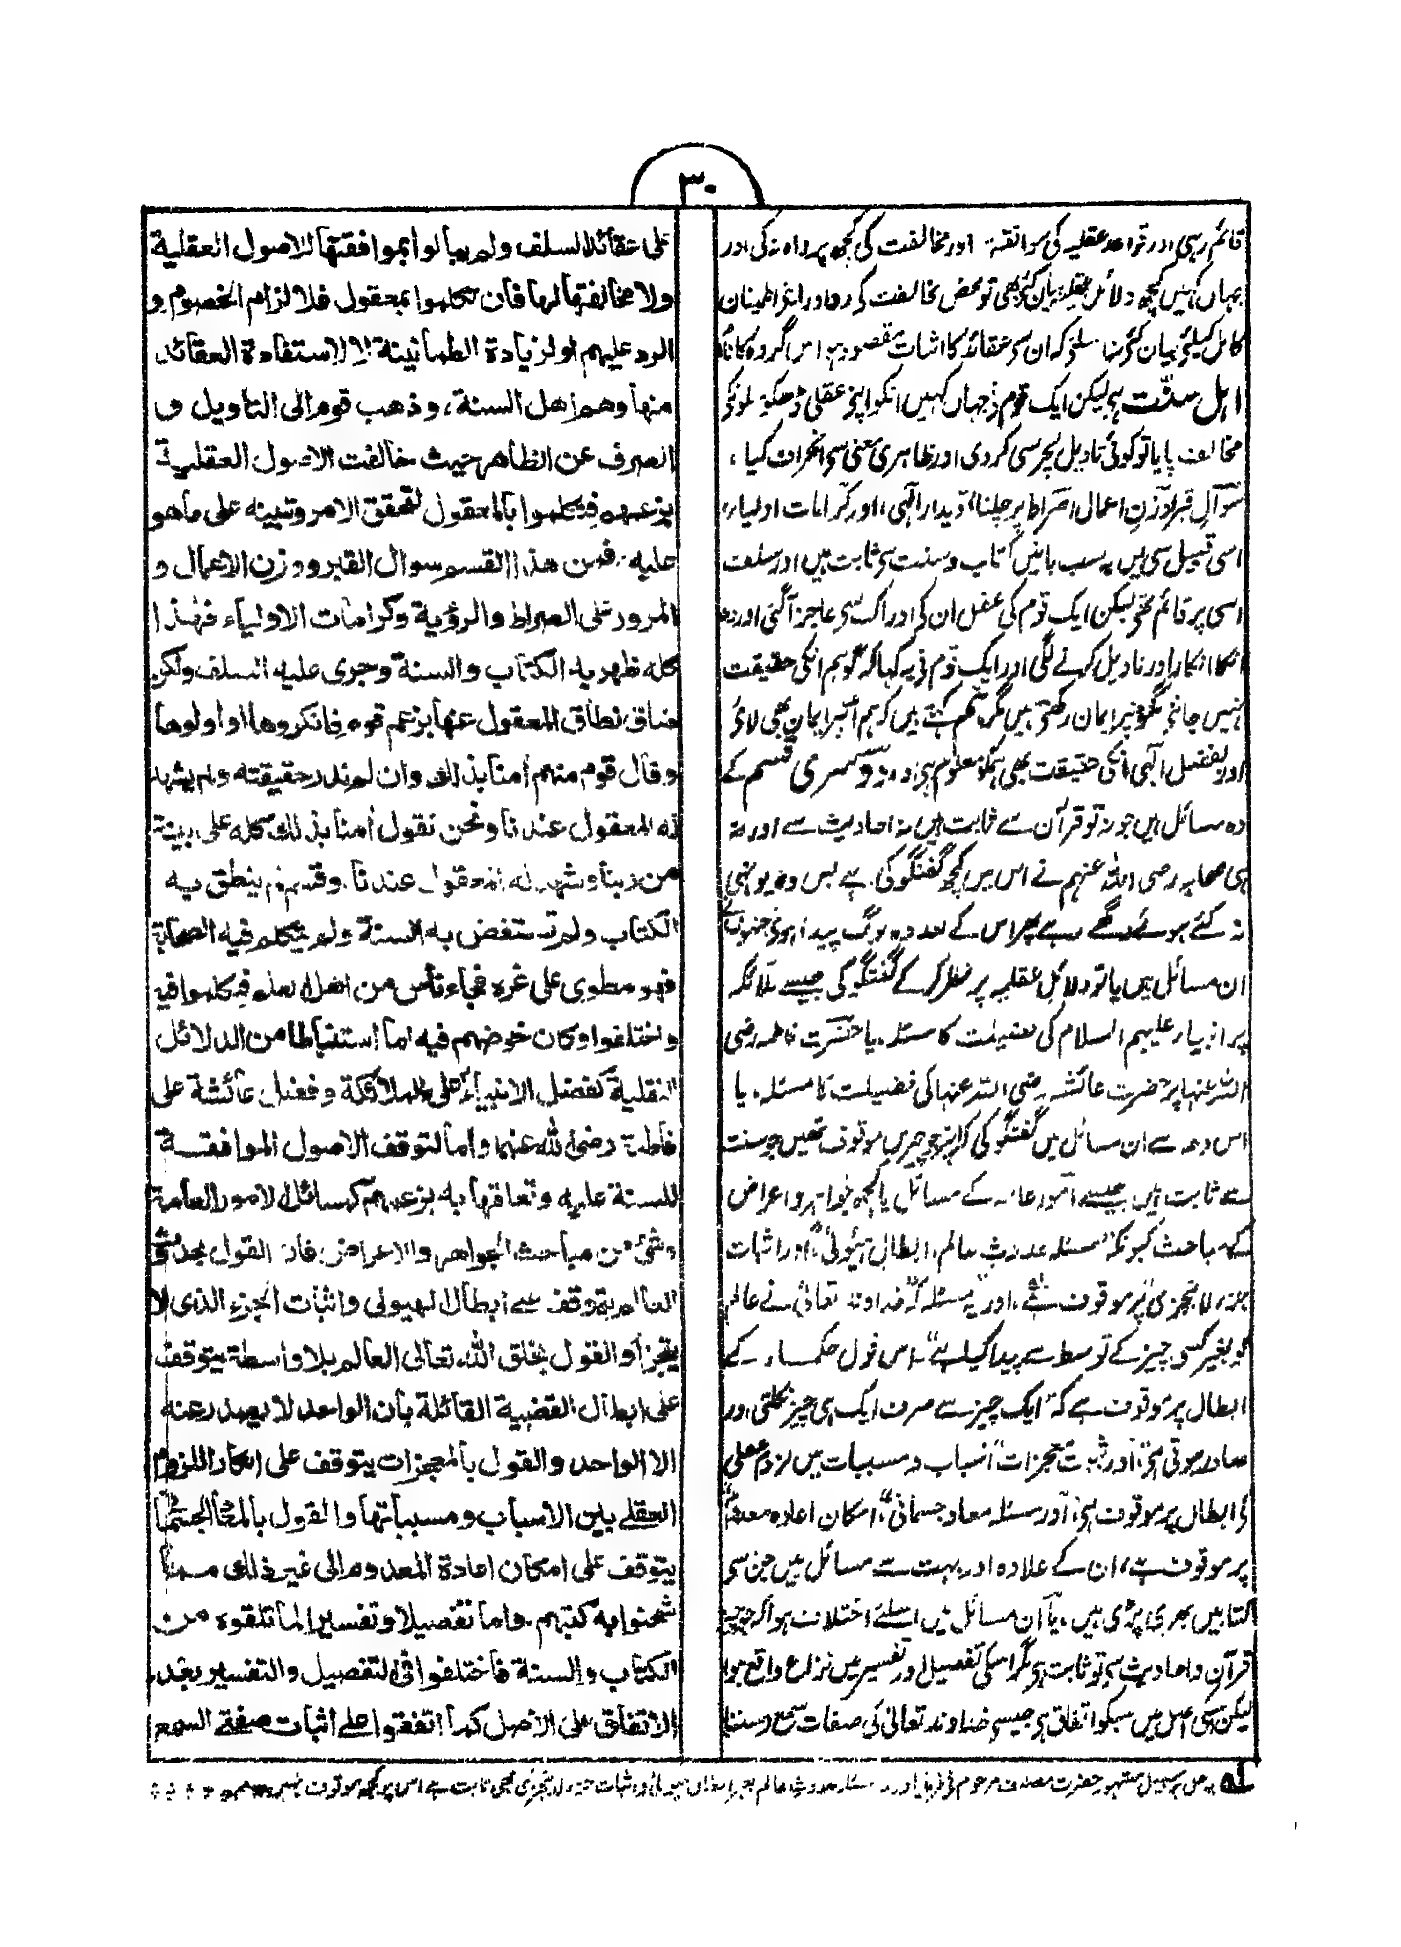 ٣٠
قائم رہی اور قواعد عقلیہ کی موافقت اور مخالفت کی کچھ پرواہ نہ کی اور
جہاں کہیں کچھ دلائل عقلیہ بیان کئے بھی تو محض مخالفت کی رد اور اپنے اطمینان
کامل کیلئے بیان کئے نہ اسلئے کہ ان سے عقائد کا اثبات مقصود ہو اس گروہ کا نام
اہل سنّت ہے لیکن ایک قوم نے جہاں کہیں انکو اپنے عقلی ڈھکوسلونکے
مخالف پایا تو کوئی تاویل لچر سی کردی اور ظاہری معنی سے انحراف کیا،
سوالِ قبر، وزنِ اعمال، صراط پر چلنا، دیدار الٰہی، اور کرامات اولیاء،
اسی قبیل سے ہیں یہ سب باتیں کتاب و سنت سے ثابت ہیں اور سلف
اسی پر قائم تھے لیکن ایک قوم کی عقل ان کی ادراک سے عاجز آگئی اور وہ
انکا انکار اور تاویل کرنے لگی اور ایک قوم نے یہ کہا کہ گو ہم انکی حقیقت
نہیں جانتے مگر انپر ایمان رکھتے ہیں مگر ہم کہتے ہیں کہ ہم انپر ایمان بھی لائے
اور بفضل الٰہی انکی حقیقت بھی ہمکو معلوم ہے اور دوسری قسم کے
وہ مسائل ہیں جو نہ تو قرآن سے ثابت ہیں نہ احادیث سے اور نہ
ہی صحابہ رضی اللہ عنہم نے اس میں کچھ گفتگو کی ہے بس وہ یونہی
نہ کئے ہوئے رکھے رہے پھر اس کے بعد وہ لوگ پیدا ہوئے جنہوں نے
ان مسائل میں یا تو دلائل عقلیہ پر نظر کر کے گفتگو کی جیسے ملائکہ
پر انبیاء علیہم السلام کی فضیلت کا مسئلہ۔ یا حضرت فاطمہ رضی
اللہ عنہا پر حضرت عائشہ رضی اللہ عنہا کی فضیلت کا مسئلہ، یا
اس وجہ سے ان مسائل میں گفتگو کی کہ انپر وہ چیزیں موقوف تھیں جو سنت
سے ثابت ہیں جیسے امور عامہ کے مسائل یا کچھ جواہر و اعراض
کے مباحث کیونکہ مسئلہ حدوث عالم، ابطال ہیولیٰ، اور اثبات
جزء لا یتجزی پر موقوف ہے، اور یہ مسئلہ کہ خداوند تعالیٰ نے عالم
کو بغیر کسی چیز کے توسط سے پیدا کیا ہے۔ اس قول حکماء کے
ابطال پر موقوف ہے کہ ایک چیز سے صرف ایک ہی چیز نکلتی اور
صادر ہوتی ہے، اور ثبوت معجزات، اسباب و مسببات میں لزوم عقلی
کے ابطال پر موقوف ہے، اور مسئلہ معاد جسمانی، امکان اعادہ معدوم
پر موقوف ہے، ان کے علاوہ اور بہت سے مسائل ہیں جن سے
کتابیں بھری پڑی ہیں، یا ان مسائل میں اسلئے اختلاف ہوا کہ
قرآن و احادیث سے تو ثابت ہے مگر اسکی تفصیل اور تفسیر میں نزاع واقع ہوا
لیکن اسکی اصل میں سبکو اتفاق ہے جیسے خداوند تعالیٰ کی صفات سمع (سننا)
علی عقائد السلف ولم يبالوا بموافقتها للاصول العقلية
ولا مخالفتها لها فأن تكلموا بمعقول فلالزام الخصوم و
الرد عليهم او لزيادة الطمأنينة لا لاستفادة العقائد
منها وهم أهل السنة، وذهب قوم الى التأويل و
الصرف عن الظاهر حيث خالفت الاصول العقلية
بزعمهم فتكلموا بالمعقول لتحقق الامر وتبينه على ما هو
عليه. فمن هذا القسم سوال القبر ووزن الاعمال و
المرور على الصراط والرؤية وكرامات الاولياء فهذا
كله ظهر به الكتاب والسنة وجرى عليه السلف ولكن
ضاق نطاق المعقول عنها بزعم قوم فانكروها او اولوها
وقال قوم منهم أمنا بذلك وان لم ندر حقيقته ولم يشهد
له المعقول عندنا ونحن نقول أمنا بذلك كله على بينة
من ربنا وشهد له المعقول عندنا. وقسم لم ينطق به
الكتاب ولم تستفض به السنة ولم يتكلم فيه الصحابة
فهو مطوى على غره فجاء ناس من اهل العلم فتكلموا فيه
واختلفوا وكان خوضهم فيه اما استنباطا من الدلائل
النقلية كفضل الانبياء على الملائكة وفضل عائشة على
فاطمة رضى الله عنهما واما لتوقف الاصول الموافقة
للسنة عليه وتعلقها به بزعمهم كمسائل الامور العامة
وشئ من مباحث الجواهر والاعراض فان القول بحدوث
العالم يتوقف على ابطال الهيولى واثبات الجزء الذى لا
يتجزأ والقول بخلق الله تعالى العالم بلا واسطة يتوقف
على ابطال القضية القائلة بأن الواحد لا يصدر عنه
الا الواحد والقول بالمعجزات يتوقف على انكار اللزوم
العقلے بين الاسباب ومسبباتها والقول بالمعاد الجسمانى
يتوقف على امكان اعادة المعدوم الى غير ذلك مما
شحنوا به كتبهم. واما تفصيلا وتفسيرا لما تلقوه من
الكتاب والسنة فأختلفوا فى التفصيل والتفسير بعد
الاتفاق على الاصل كما اتفقوا علے اثبات صفتى السمع
له بر سبیل مشہور حضرت مصنف مرحوم نے فرمایا ورنہ مسئلہ حدوث عالم بغیر ابطال ہیولیٰ و اثبات جزء لا یتجزی بھی ثابت ہے اس پر کچھ موقوف نہیں